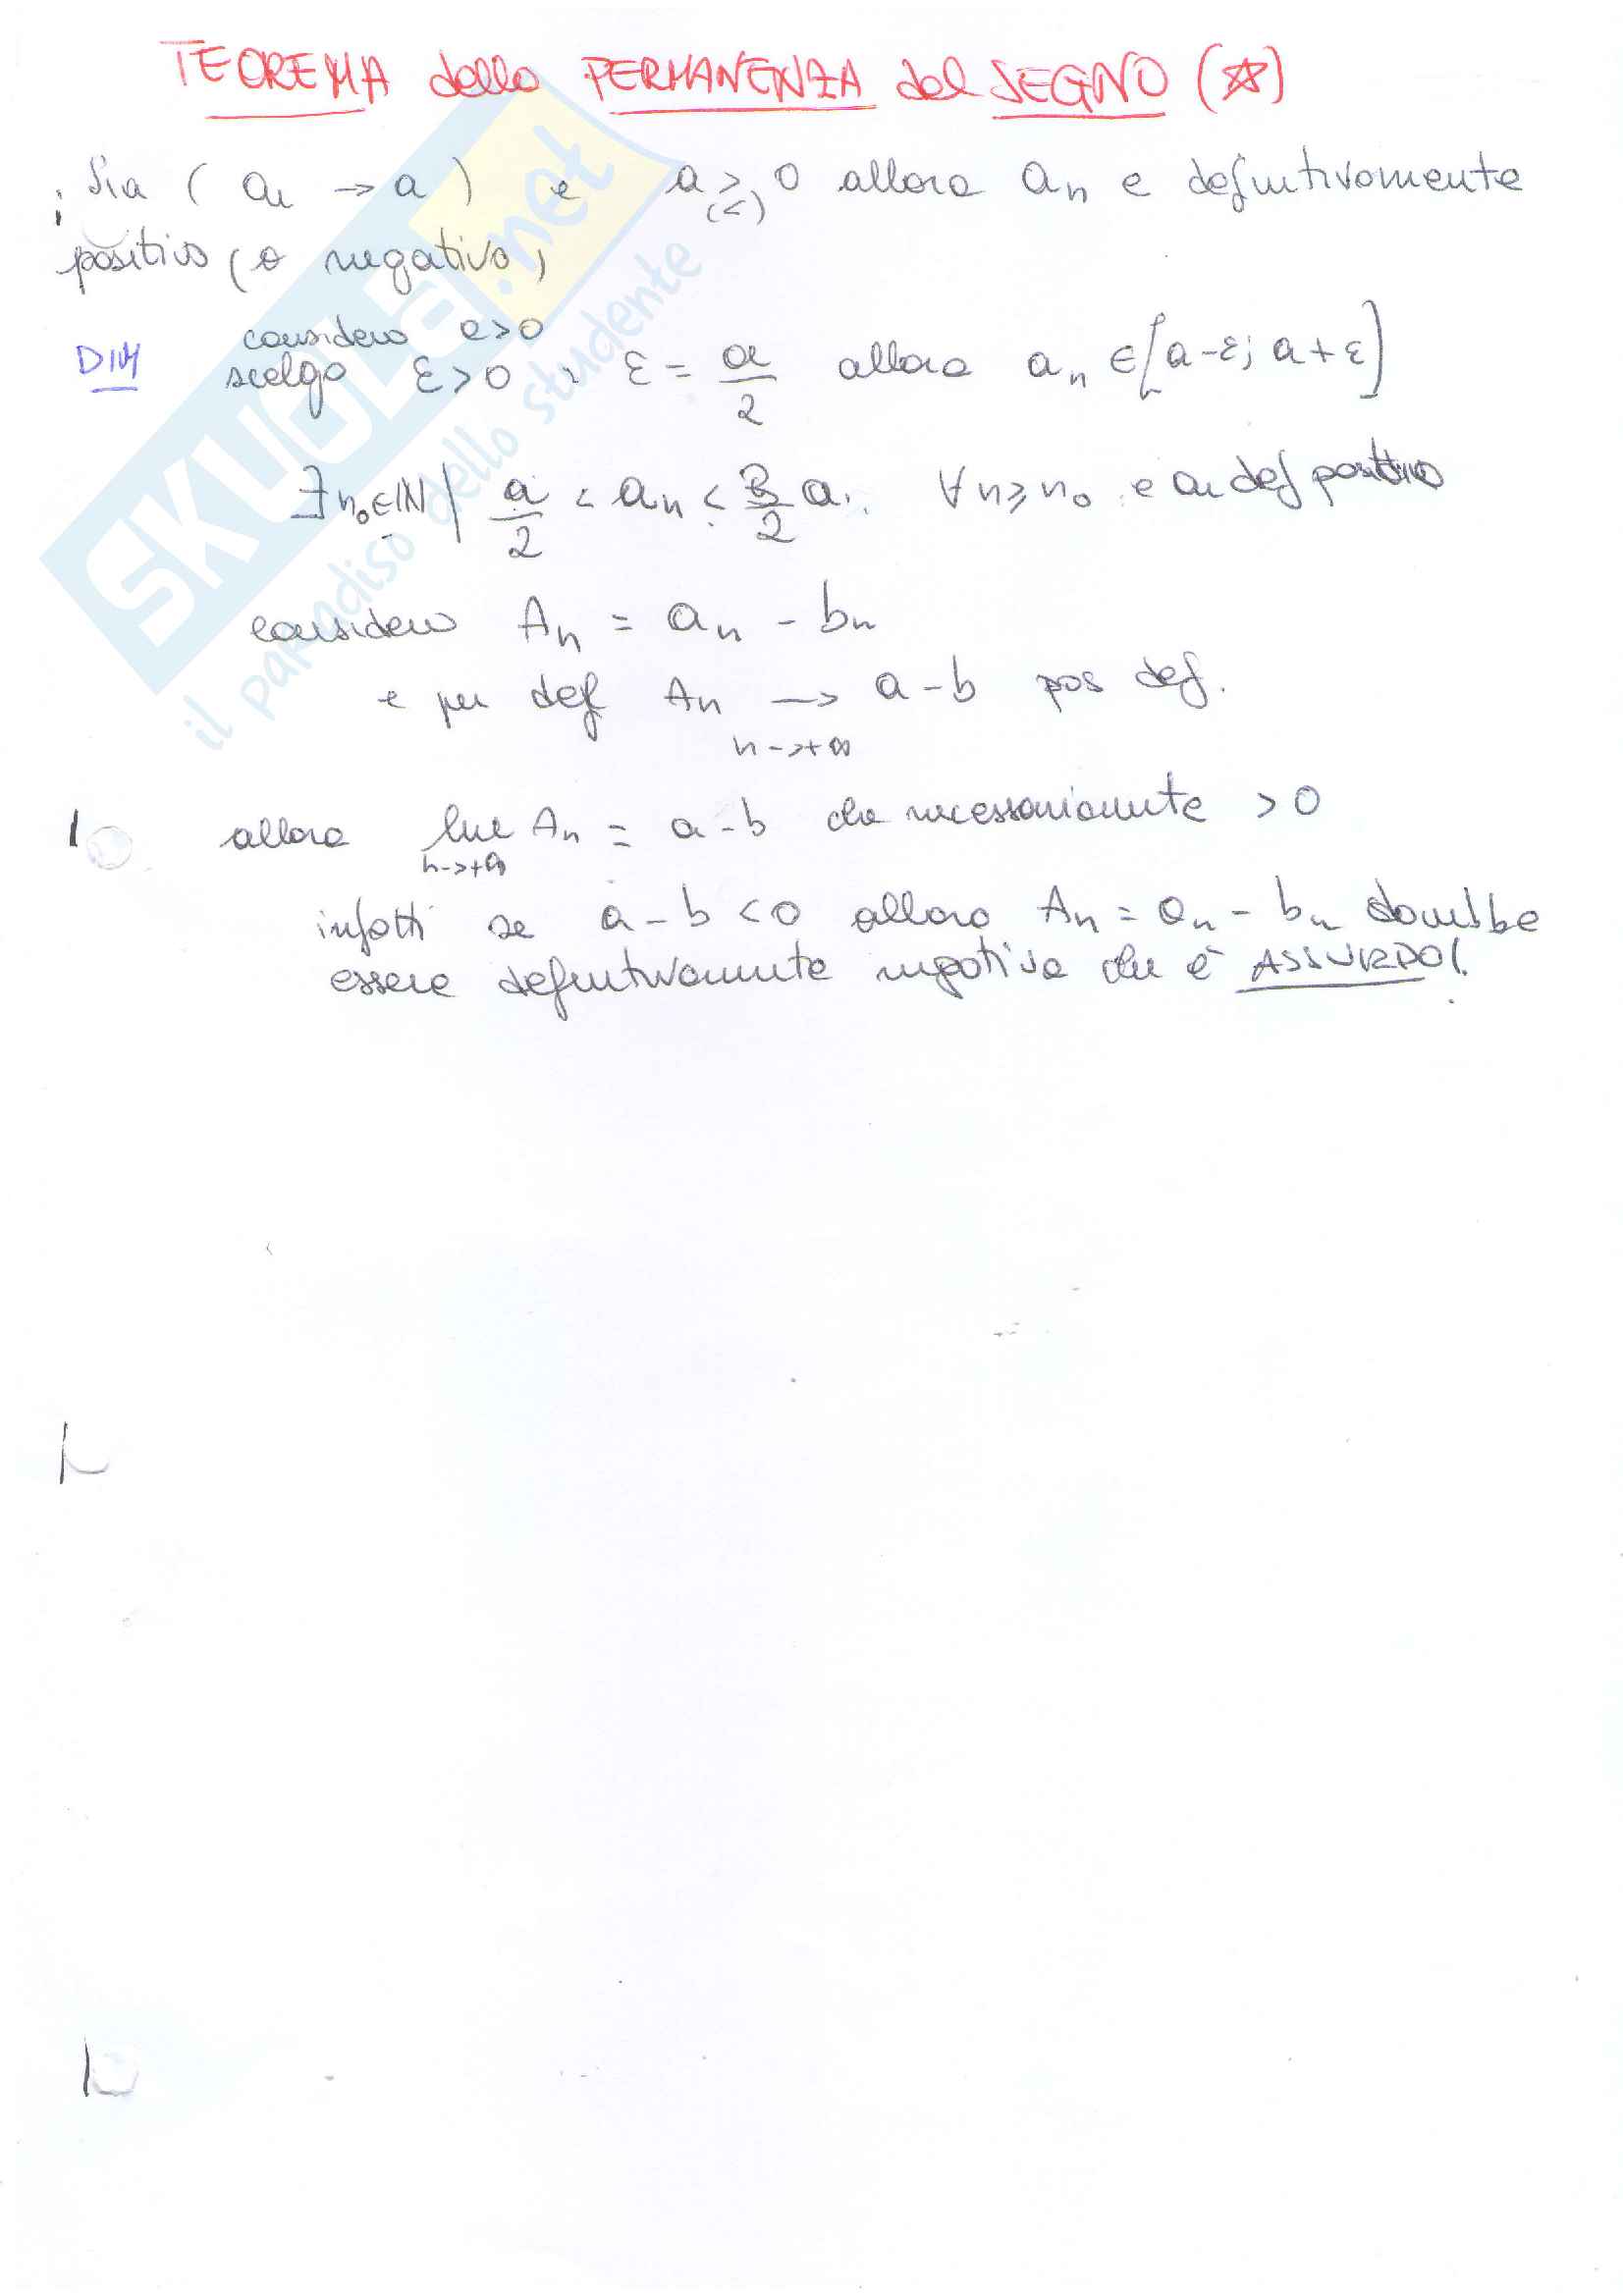 TEOREMA della PERMANENZA del SEGNO (☆)
Sia ( an → a ) e a > 0 allora an e definitivamente
(<)
positiva (o negativa)
DIM considero a>0
scelgo ε>0 , ε = a/2 allora an ∈ [a-ε; a+ε]
∃ n₀∈ℕ | a/2 < an < 3/2 a. ∀n≥n₀ e an def positiva
considero An = an - bn
e per def An → a-b pos def.
n→+∞
allora lim An = a-b che necessariamente >0
n→+∞
infatti se a-b<0 allora An = an - bn dovrebbe
essere definitivamente negativa che è ASSURDO!
SKUOLA.net
il paradiso dello studente